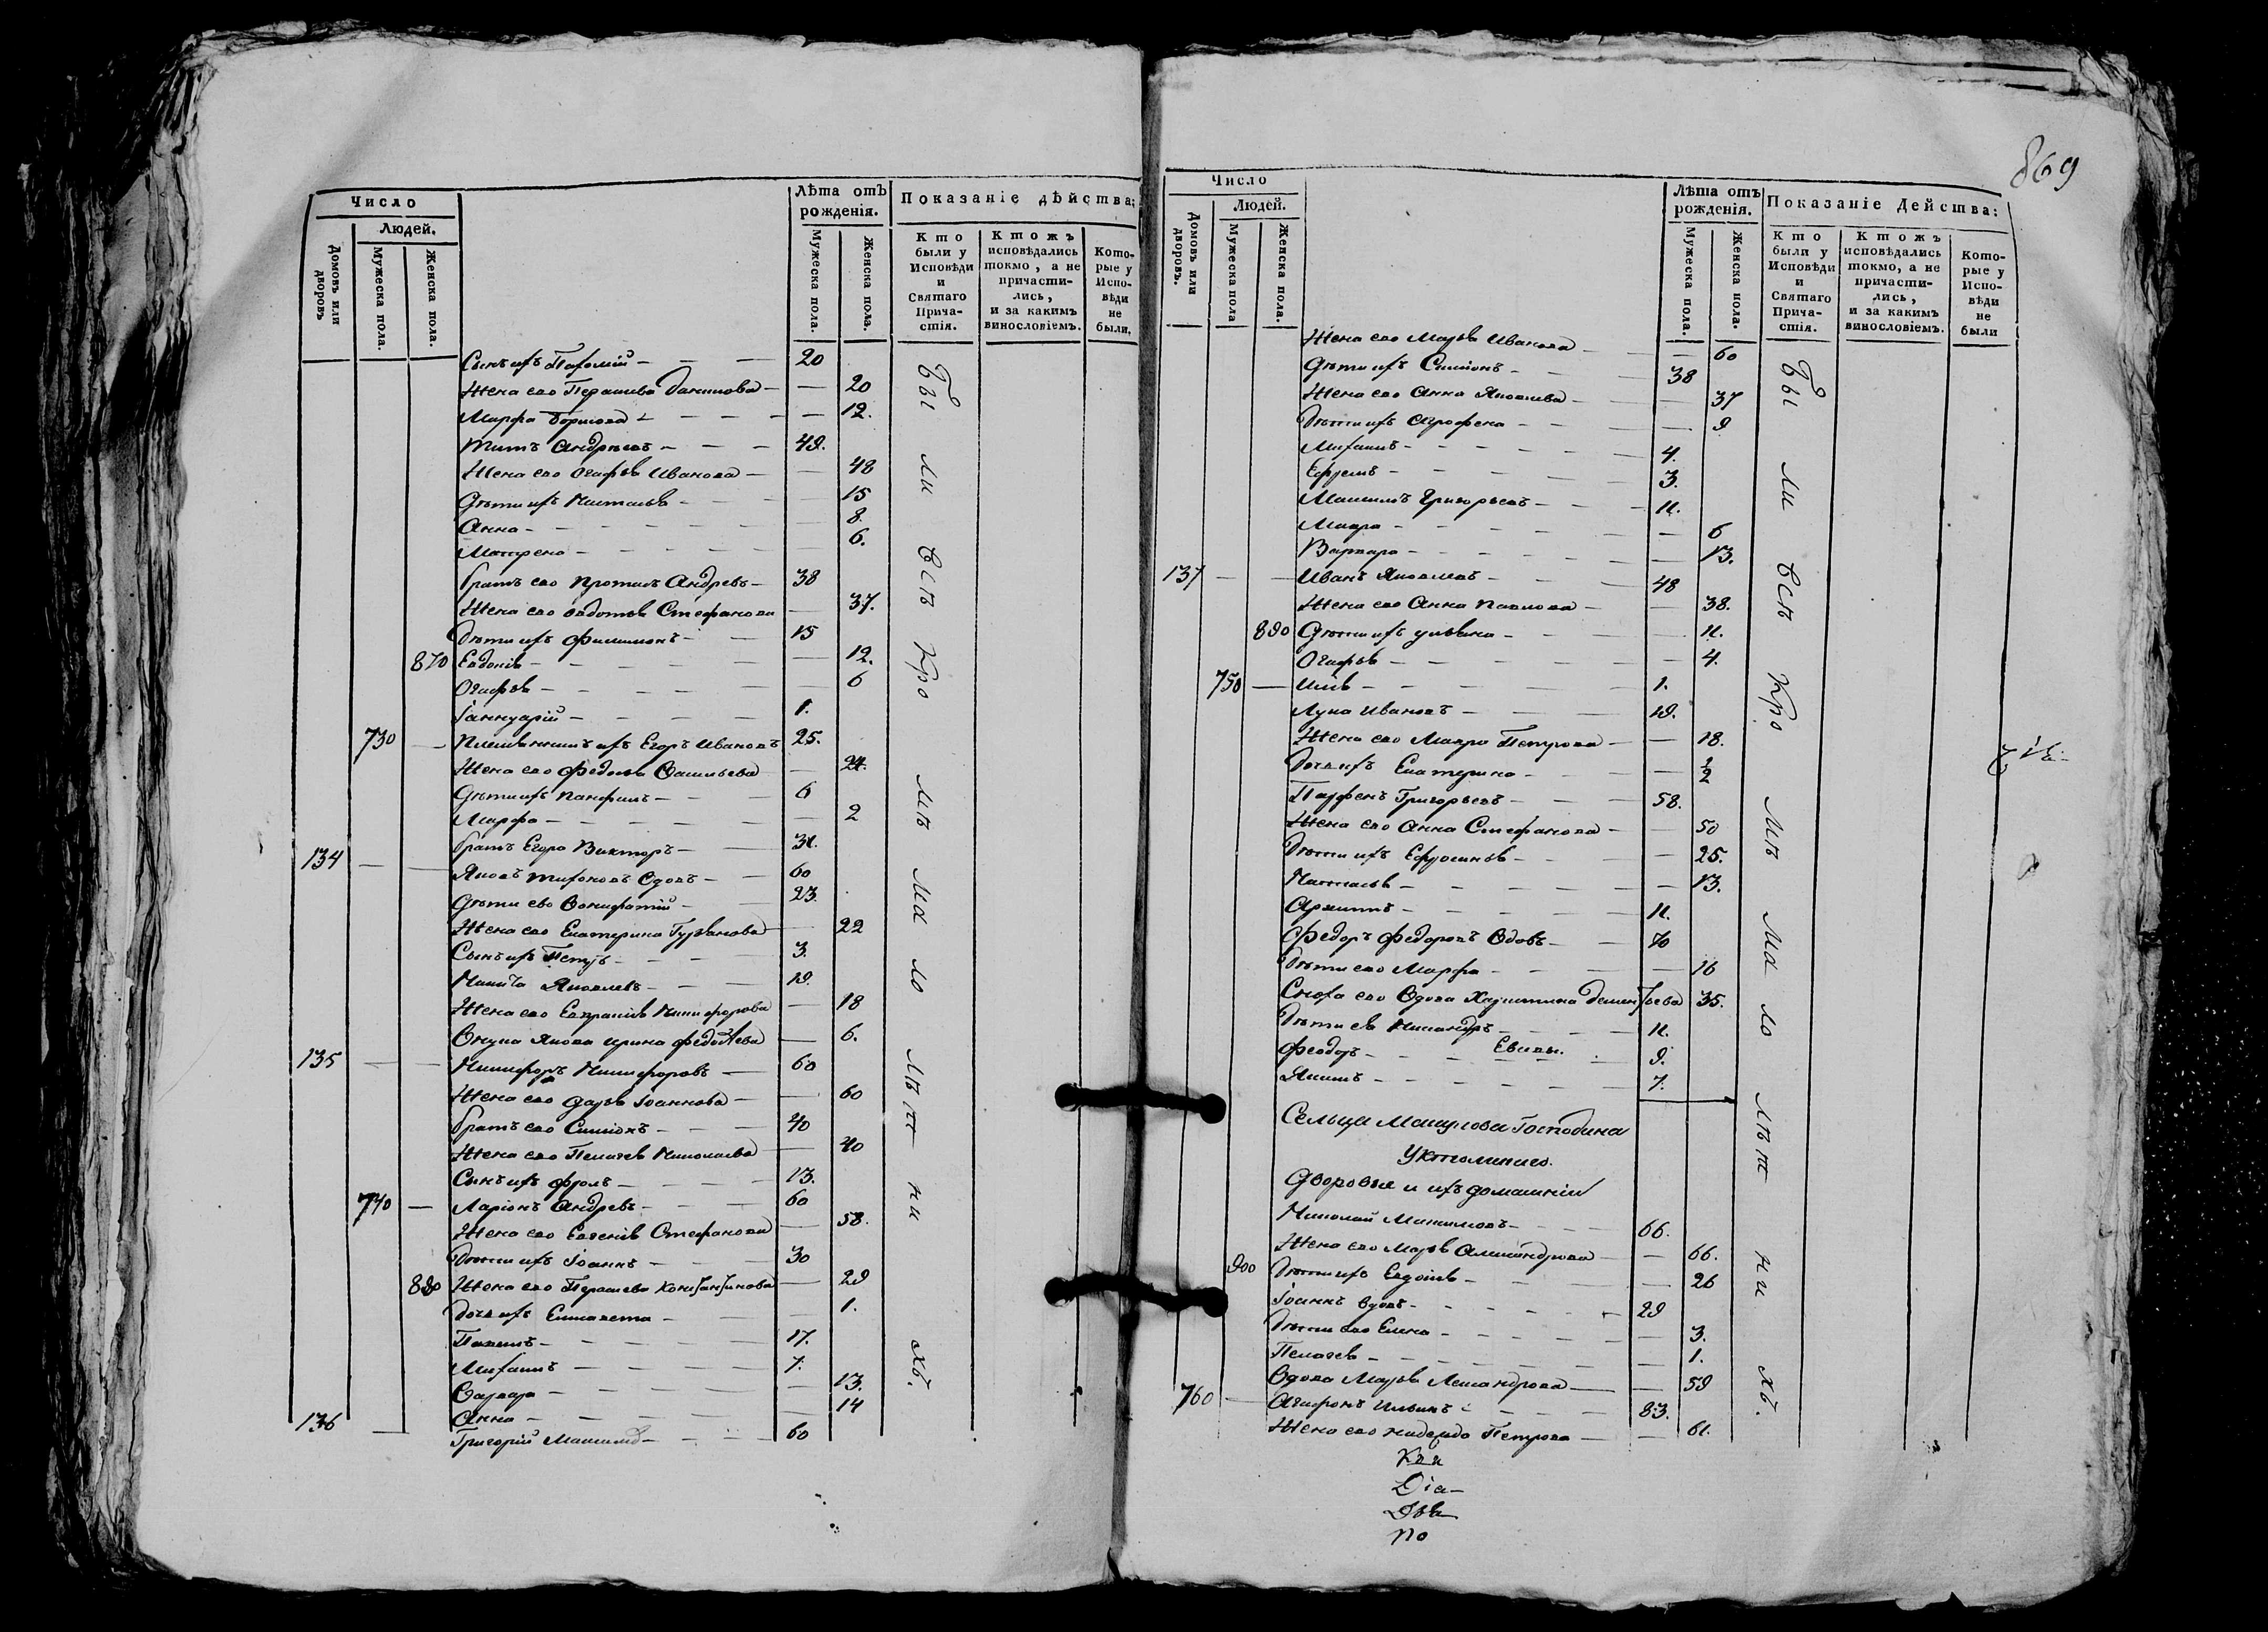 Число
Людей.
Домовъ или дворовъ
Мужеска пола.
Женска пола.
Лѣта отъ рожденія.
Мужеска пола.
Женска пола.
Показаніе дѣйства:
Кто были у Исповѣди и Святаго Прича-стія.
Ктожъ исповѣдались токмо, а не причасти-лись, и за какимъ винословіемъ.
Кото-рые у Испо-вѣди не были,
Сынъ ихъ Пахомій — 20
Жена его Параскева Данилова — 20
Марфа Борисова — 12.
Титъ Андреевъ — 49.
Жена его Огафья Иванова — 48
Дѣти ихъ Наталья — 15
Анна — 8.
Матрена — 6.
братъ его Андревъ — 38
Жена его Овдотья Стефанова — 37.
Дѣти ихъ Филимонъ — 15
870 Евдокія — 12.
Огафья — 6
Іаннуарій — 1.
730 — Племянникъ ихъ Егоръ Ивановъ 25.
Жена его Федосья Васильева — 24.
Дѣти ихъ Панфилъ — 6
Марфа — 2
братъ Егора Викторъ — 31.
134 — Яковъ Тихоновъ вдовъ — 60
Дѣти его Вонифатій — 23.
Жена его Екатерина Гурьянова — 22
Сынъ ихъ Петръ — 3.
Никита Яковлевъ — 19.
Жена его Евпраксія Никифорова — 18
Внука Якова Ирина — 6.
135 — Никифоръ Никифоровъ — 60
Жена его Дарья Іоаннова — 60
братъ его Симіонъ — 40
Жена его Пелагея Николаева — 40
Сынъ ихъ Фролъ — 13.
740 — Ларіонъ Андревъ — 60
Жена его Евгенія Стефанова — 58.
Дѣти ихъ Іоаннъ — 30
880 Жена его Параскева Константинова — 29
Дочь ихъ Елисавета — 1.
Павелъ — 17.
Михаилъ — 7.
Варвара — 13.
Анна — 14
136 — Григорій — 60
Бы ли всѣ кро мѣ ма ло лѣт ни хъ.
869
Число
Людей.
Домовъ или дворовъ.
Мужеска пола
Женска пола.
Лѣта отъ рожденія.
Мужеска пола.
Женска пола.
Показаніе Действа:
Кто были у Исповѣди и Святаго Прича-стія.
Ктожъ исповѣдались токмо, а не причасти-лись, и за какимъ винословіемъ.
Кото-рые у Испо-вѣди не были
Жена его Марья Иванова — 60
Дѣти ихъ Симіонъ — 38
Жена его Анна Яковлева — 37
Дѣти ихъ Агрофена — 9
Михаилъ — 4.
Ефремъ — 3.
Максимъ Григорьевъ — 11.
Мавра — 6
Варвара — 13.
137 — Иванъ Яковлевъ — 48
Жена его Анна Павлова — 38.
890 Дѣти ихъ Ульяна — 11.
Огафья — 4.
750 — Илія — 1.
Лука Ивановъ — 19.
Жена его Мавра Петрова — 18.
Дочь ихъ Екатерина — 1/2
Парфенъ Григорьевъ — 58.
Жена его Анна Стефанова — 50
Дѣти ихъ Ефросинья — 25.
Наталья — 13.
Архипъ — 11.
Федоръ Федоровъ Вдовъ — 70
Дѣти его Марфа — 16
Сноха его Вдова Харитина Дементьева 35.
Дѣти ея Никандръ — 11.
Феодоръ — 9.
Якимъ — 7.
Сельца Господина
Дворовыя и ихъ домашніи
Николай Максимовъ — 66.
Жена его Марья Александрова — 66.
900 Дѣти ихъ Евдокія — 26
Іоаннъ вдовъ — 29
Дѣти его Елена — 3.
Пелагея — 1.
Вдова Марья — 59
760 — Агафонъ Ильинъ — 83.
Жена его Надежда Петрова — 61.
Бы ли всѣ кро мѣ ма ло лѣт ни хъ.
Діа-
по